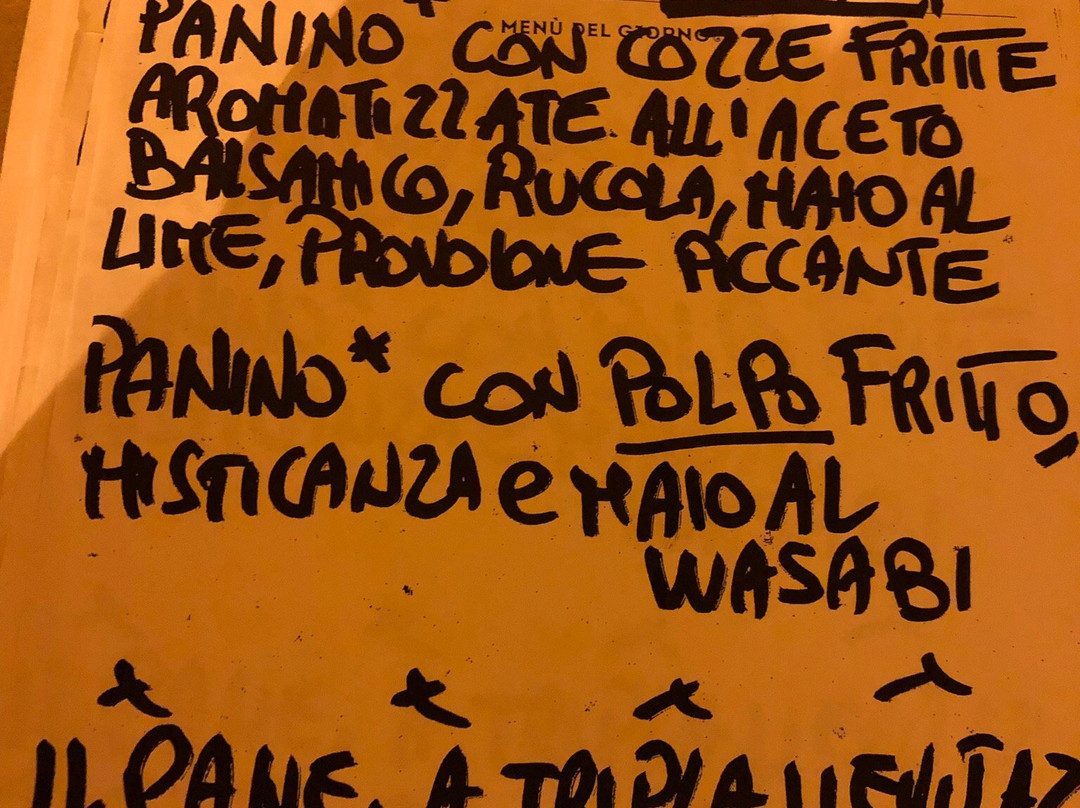 MENÙ DEL GIORNO
PANINO* CON COZZE FRITTE
AROMATIZZATE ALL'ACETO
BALSAMICO, RUCOLA, MAIO AL
LIME, PROVOLONE PICCANTE
PANINO* CON POLPO FRITTO,
MISTICANZA e MAIO AL
WASABI
* * * *
IL PANE, A TRIPLA LIEVITAZ